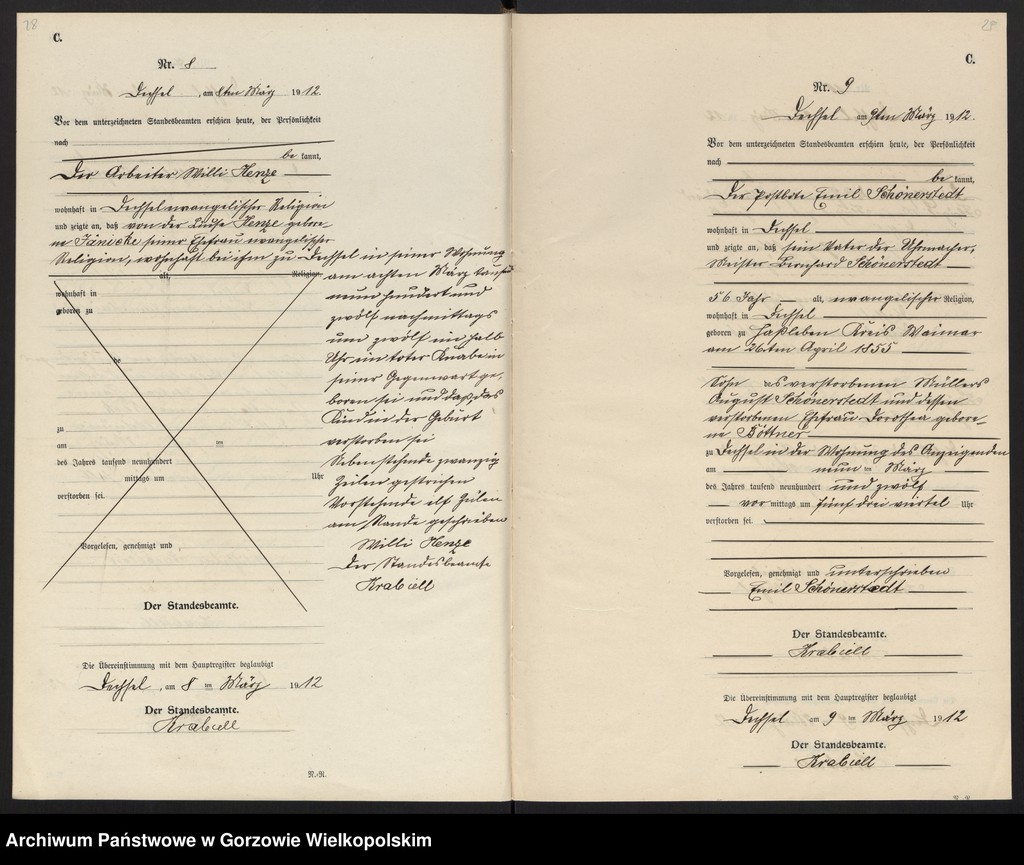 28
C.
Nr. 8
Dechsel, am 8ten März 1912.
Vor dem unterzeichneten Standesbeamten erschien heute, der Persönlichkeit
nach
be kannt,
Der Arbeiter Willi Henze
wohnhaft in Dechsel evangelischer Religion
und zeigte an, daß von der Luise Henze gebore-
ne Jänicke seiner Ehefrau evangelischer
Religion, wohnhaft bei ihm zu Dechsel in seiner Wohnung
alt, Religion,
wohnhaft in
geboren zu
zu
am ten
des Jahres tausend neunhundert
mittags um Uhr
verstorben sei.
Vorgelesen, genehmigt und
am achten März tausend
neunhundert und
zwölf nachmittags
um zwölf ein halb
Uhr ein toter Knabe in
seiner Gegenwart ge-
boren sei und daß das
Kind in der Geburt
verstorben sei
Nebenstehende zwanzig
Zeilen gestrichen
Vorstehende elf Zeilen
am Rande geschrieben
Willi Henze
Der Standesbeamte
Krabiell
Der Standesbeamte.
Die Übereinstimmung mit dem Hauptregister beglaubigt
Dechsel, am 8 ten März 1912
Der Standesbeamte.
Krabiell
N.-N.
C.
Nr. 9
Dechsel am 9ten März 1912.
Vor dem unterzeichneten Standesbeamten erschien heute, der Persönlichkeit
nach
be kannt,
Der Postbote Emil Schönerstedt
wohnhaft in Dechsel
und zeigte an, daß sein Vater der Uhrmacher,
Meister Bernhard Schönerstedt
56 Jahr alt, evangelischer Religion,
wohnhaft in Dechsel
geboren zu Haßleben Kreis Weimar
am 26ten April 1855
Sohn des verstorbenen Müllers
August Schönerstedt und dessen
verstorbenen Ehefrau Dorothea gebore-
ne Böttner
zu Dechsel in der Wohnung des Anzeigenden
am neun ten März
des Jahres tausend neunhundert und zwölf
vor mittags um fünf drei viertel Uhr
verstorben sei.
Vorgelesen, genehmigt und unterschrieben
Emil Schönerstedt
Der Standesbeamte.
Krabiell
Die Übereinstimmung mit dem Hauptregister beglaubigt
Dechsel am 9 ten März 1912
Der Standesbeamte.
Krabiell
Archiwum Państwowe w Gorzowie Wielkopolskim